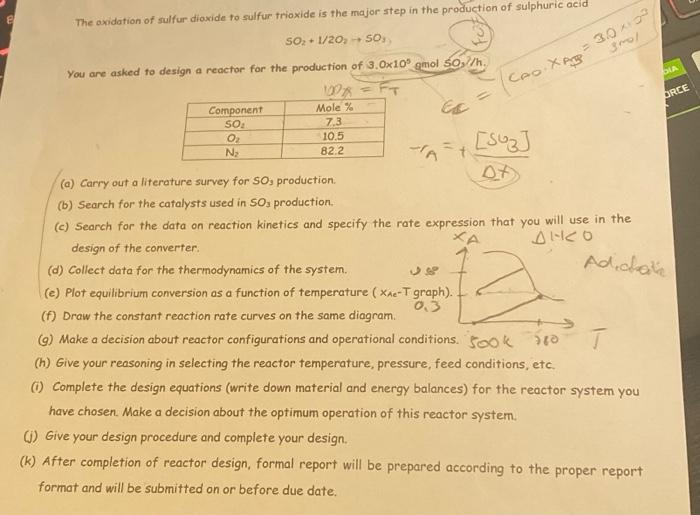 The oxidation of sulfur dioxide to sulfur trioxide is the major step in the production of sulphuric acid
SO₂ + 1/2O₂ → SO₃
You are asked to design a reactor for the production of 3.0x10⁵ gmol SO₃/h.
= FT
Component Mole %
SO₂ 7.3
O₂ 10.5
N₂ 82.2
-rA = + [SO3] / Δt
(a) Carry out a literature survey for SO₃ production.
(b) Search for the catalysts used in SO₃ production.
(c) Search for the data on reaction kinetics and specify the rate expression that you will use in the
design of the converter.
XA ΔH<0
(d) Collect data for the thermodynamics of the system.
(e) Plot equilibrium conversion as a function of temperature (XAe-T graph).
0.3
(f) Draw the constant reaction rate curves on the same diagram.
(g) Make a decision about reactor configurations and operational conditions.
500k T
(h) Give your reasoning in selecting the reactor temperature, pressure, feed conditions, etc.
(i) Complete the design equations (write down material and energy balances) for the reactor system you
have chosen. Make a decision about the optimum operation of this reactor system.
(j) Give your design procedure and complete your design.
(k) After completion of reactor design, formal report will be prepared according to the proper report
format and will be submitted on or before due date.